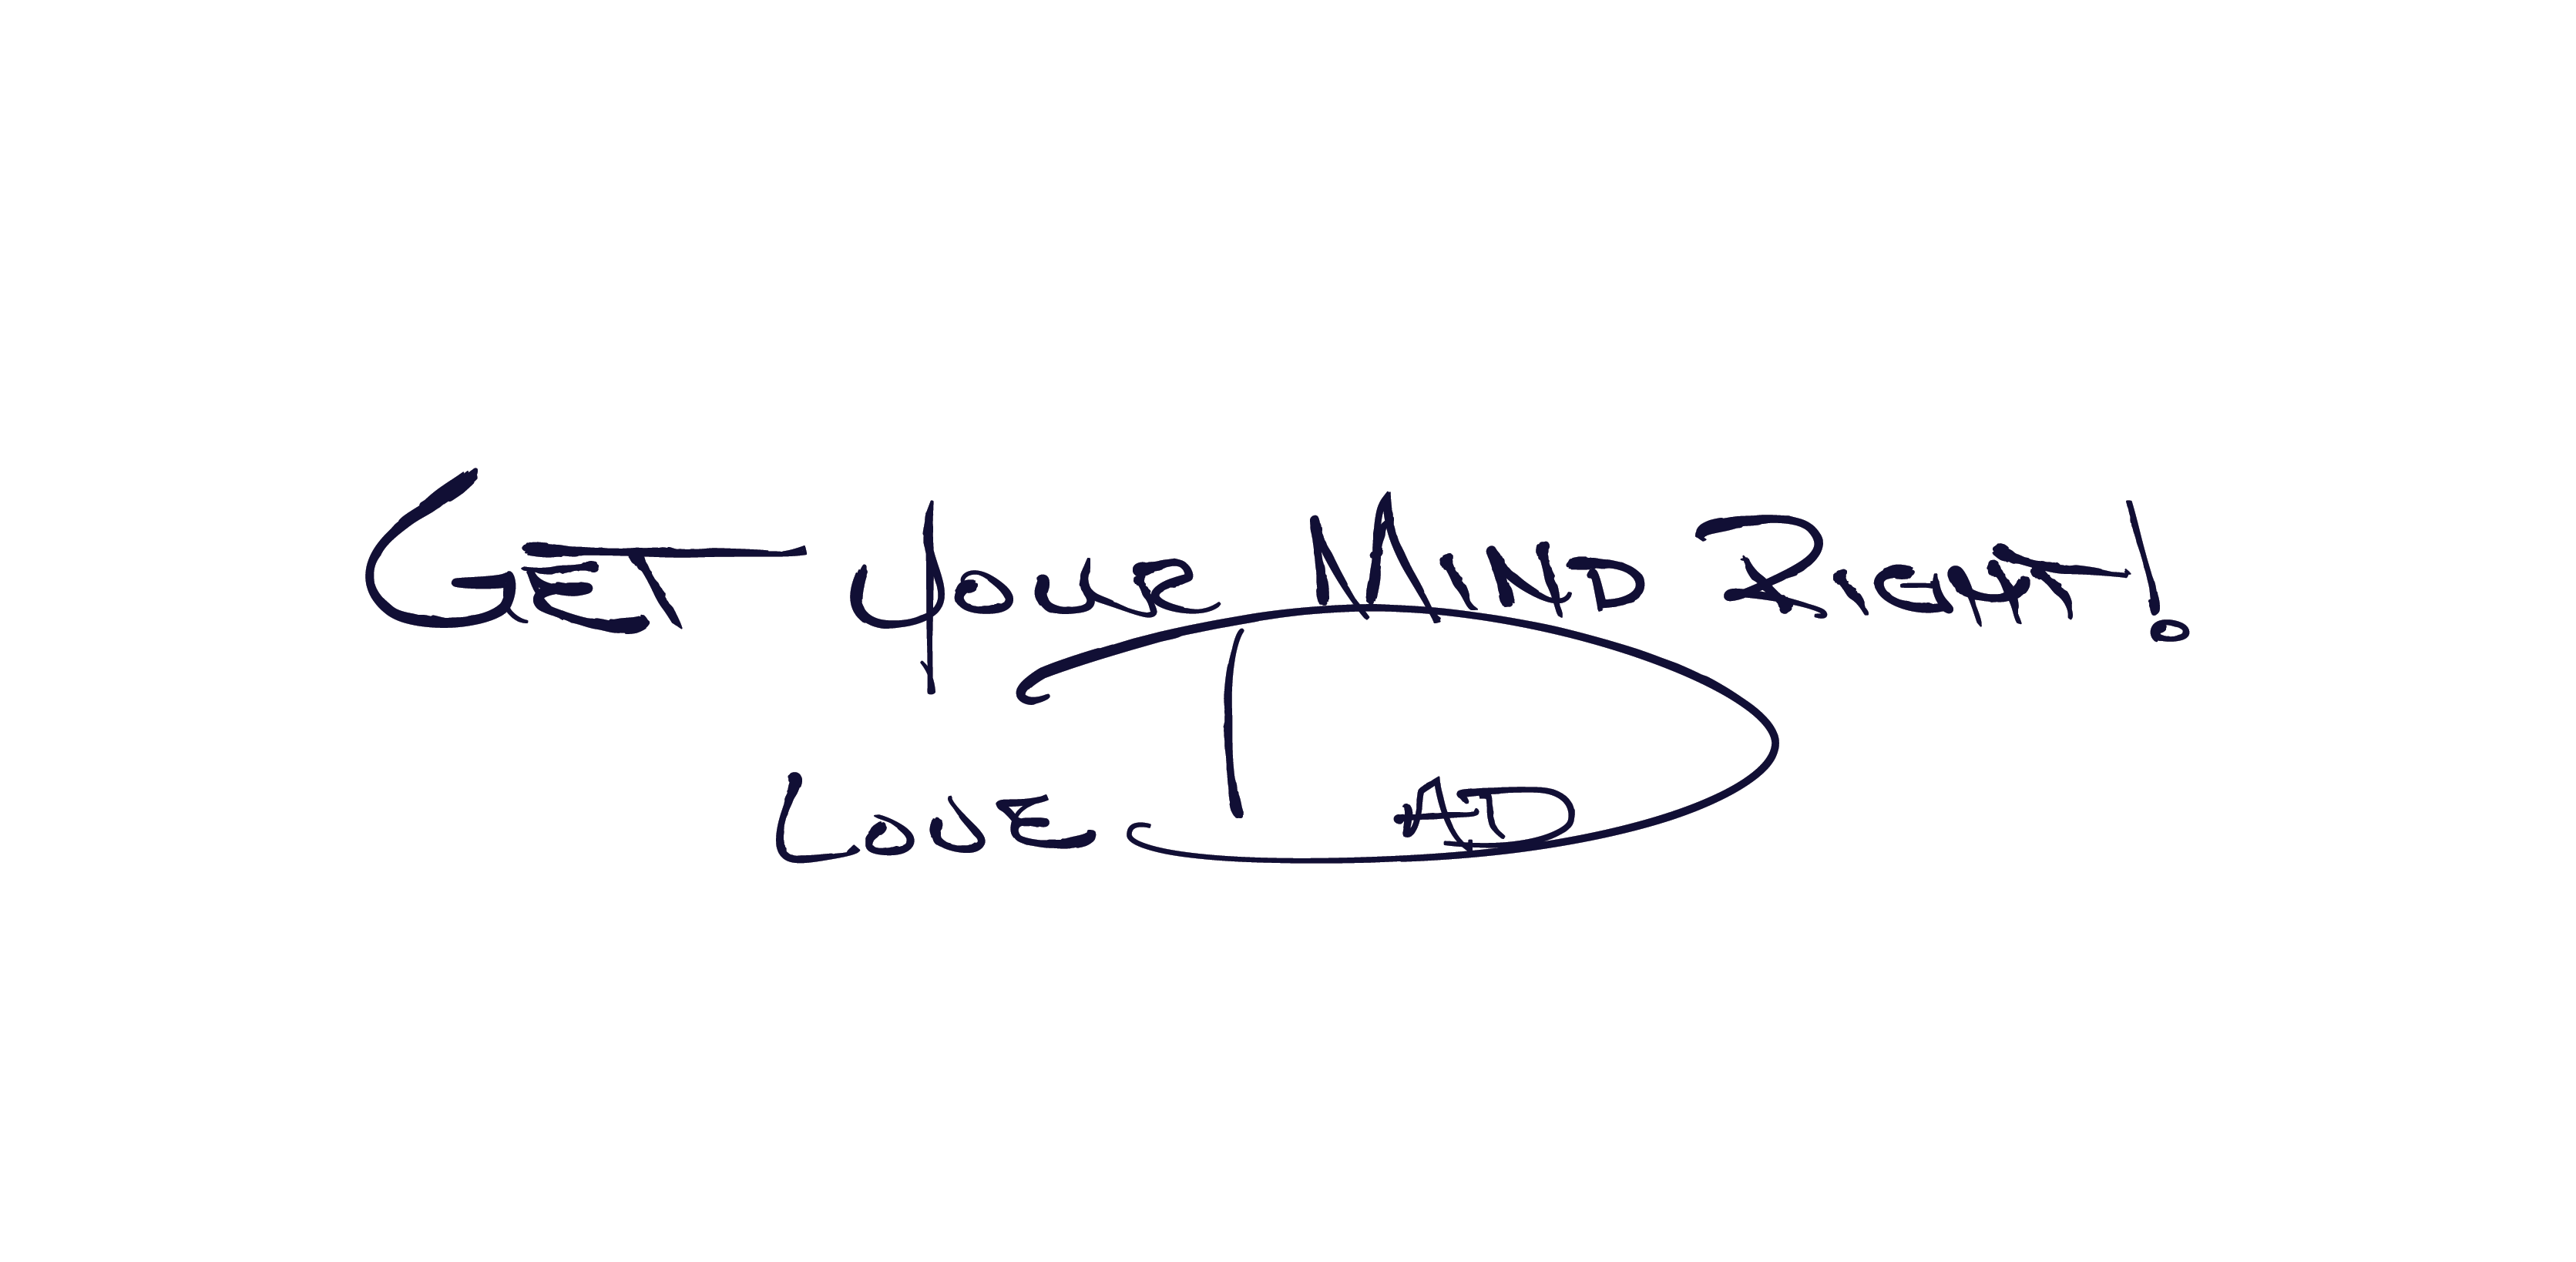 GET YOUR MIND RIGHT!
LOVE DAD